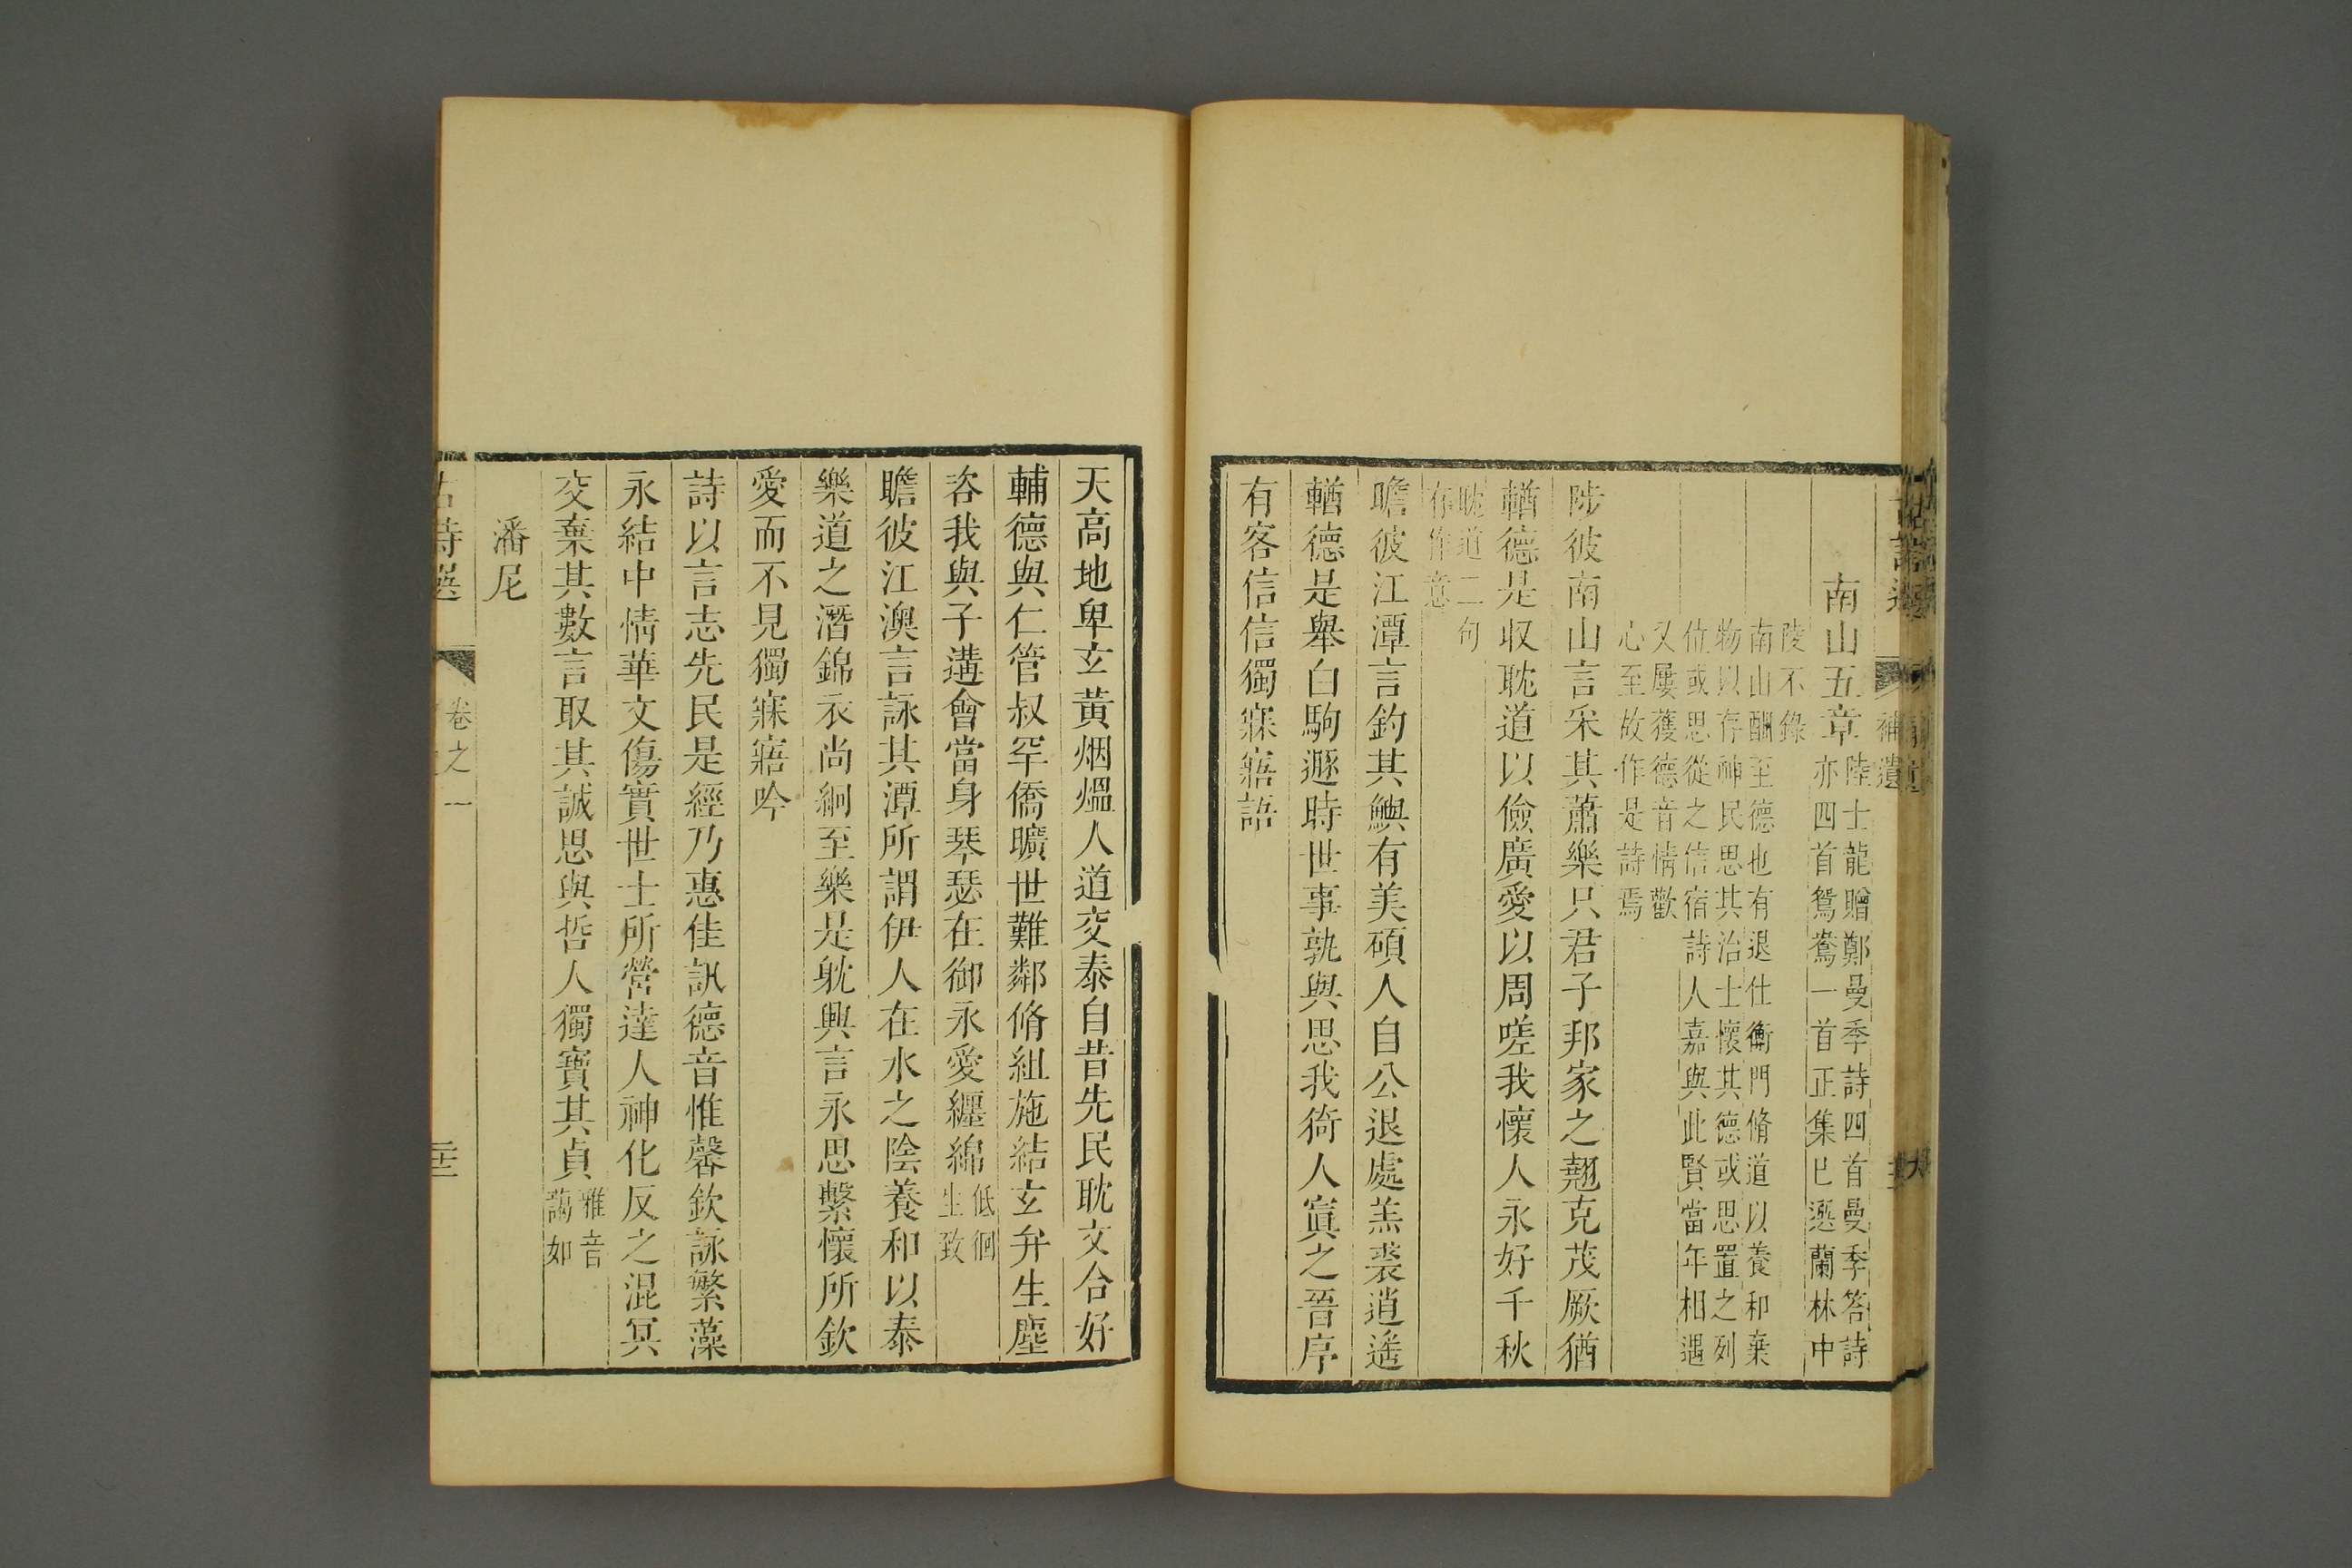 南山五章
陸士龍贈鄭曼季詩四首曼季答詩
亦四首鴛鴦一首正集已選蘭林中
陵不錄
南山酬至德也有退仕衡門脩道以養和棄
物以存神民思其治士懷其德或思置之列
位或思從之信宿詩人嘉與此賢當年相遇
又屢獲德音情歡
心至故作是詩焉
陟彼南山言采其蕭樂只君子邦家之翹克茂厥猶
輶德是收耽道以儉廣愛以周嗟我懷人永好千秋
耽道二句
存作意
瞻彼江潭言釣其鱮有美碩人自公退處羔裘逍遙
輶德是舉白駒遯時世事孰與思我猗人寘之晉序
有客信信獨寐寤語
補遺
天高地卑玄黃烟熅人道交泰自昔先民耽文合好
輔德與仁管叔罕僑曠世難鄰脩組施結玄弁生塵
咨我與子遘會當身琴瑟在御永愛纏綿
低徊
生致
瞻彼江澳言詠其潭所謂伊人在水之陰養和以泰
樂道之潛錦衣尚絅至樂是躭興言永思繫懷所欽
愛而不見獨寐寤吟
詩以言志先民是經乃惠佳訊德音惟馨欽詠繁藻
永結中情華文傷實世士所營達人神化反之混冥
交棄其數言取其誠思與哲人獨寶其貞
雅音
藹如
潘尼
古詩選
卷之一